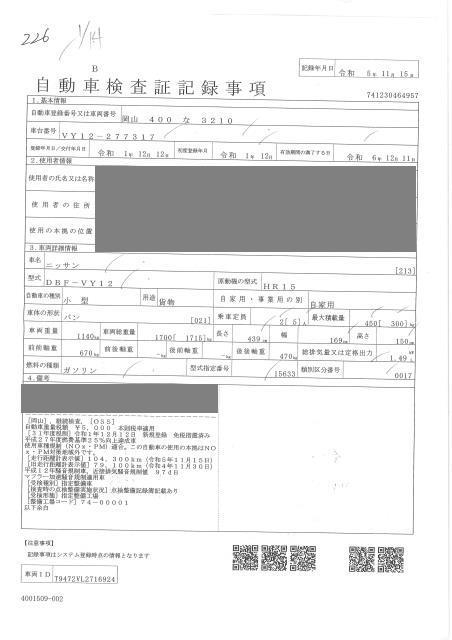 226 1/14
B
自動車検査証記録事項
記録年月日 令和 5年 11月 15日
741230464957
1.基本情報
自動車登録番号又は車両番号 岡山 400 な 3210
車台番号 VY12-277317
登録年月日/交付年月日 令和 1年 12月 12日 初度登録年月 令和 1年 12月 有効期間の満了する日 令和 6年 12月 11日
2.使用者情報
使用者の氏名又は名称
使用者の住所
使用の本拠の位置
3.車両詳細情報
車名 ニッサン [213]
型式 DBF-VY12 原動機の型式 HR15
自動車の種別 小型 用途 貨物 自家用・事業用の別 自家用
車体の形状 バン [021] 乗車定員 2[ 5]人 最大積載量 450[ 300]kg
車両重量 1140kg 車両総重量 1700[ 1715]kg 長さ 439cm 幅 169cm 高さ 150cm
前前軸重 670kg 前後軸重 -kg 後前軸重 -kg 後後軸重 470kg 総排気量又は定格出力 1.49 kW L
燃料の種類 ガソリン 型式指定番号 15633 類別区分番号 0017
4.備考
[岡山], 継続検査, [OSS]
自動車重量税額 ¥5,000 本則税率適用
[31年度税制] 令和1年12月12日 新規登録 免税措置済み
平成27年度燃費基準25%向上達成車
使用車種規制(NOx・PM)適合, この自動車の使用の本拠はNO
x・PM対策地域外です。
[走行距離計表示値] 104,300km (令和5年11月15日)
[旧走行距離計表示値] 79,100km (令和4年11月30日)
平成12年騒音規制車, 近接排気騒音規制値 97dB
マフラー加速騒音規制適用車
[受検種別] 指定整備車
[検査時の点検整備実施状況] 点検整備記録簿記載あり
[受検形態] 指定整備工場
[整備工場コード] 74-00001
以下余白
【注意事項】
記録事項はシステム登録時点の情報となります
車両ID T9472VL2716924
4001509-002